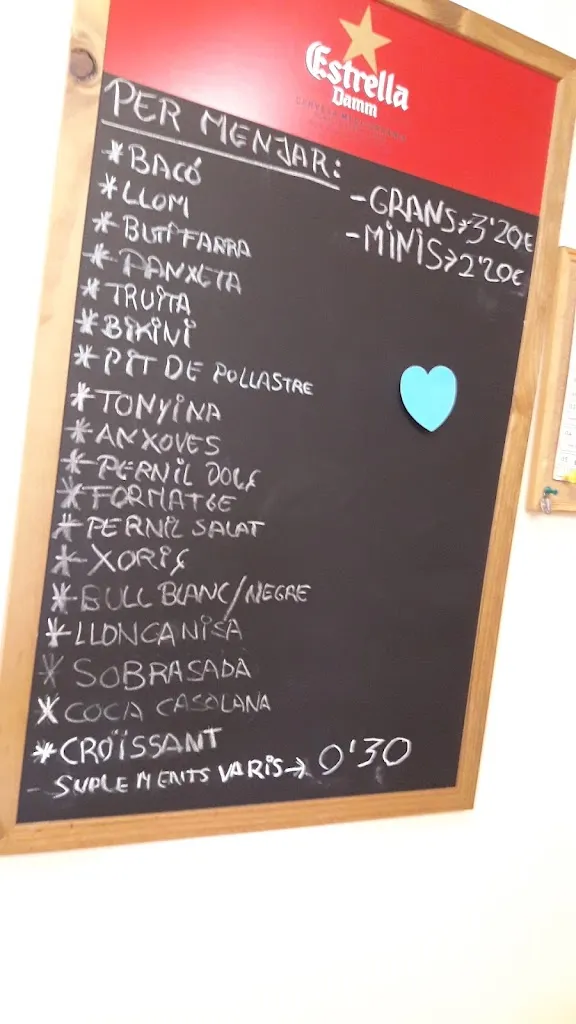 Estrella
Damm
PER MENJAR:
-GRANS→3'20€
-MINIS→2'20€
*BACÓ
*LLOM
*BUTIFARRA
*PANXETA
*TRUITA
*BIKINI
*PIT DE POLLASTRE
*TONYINA
*ANXOVES
*PERNIL DOLÇ
*FORMATGE
*PERNIL SALAT
*XORIÇ
*BULL BLANC/NEGRE
*LLONCANISA
*SOBRASADA
*COCA CASOLANA
*CROÏSSANT
- SUPLEMENTS VARIS→ 0'30